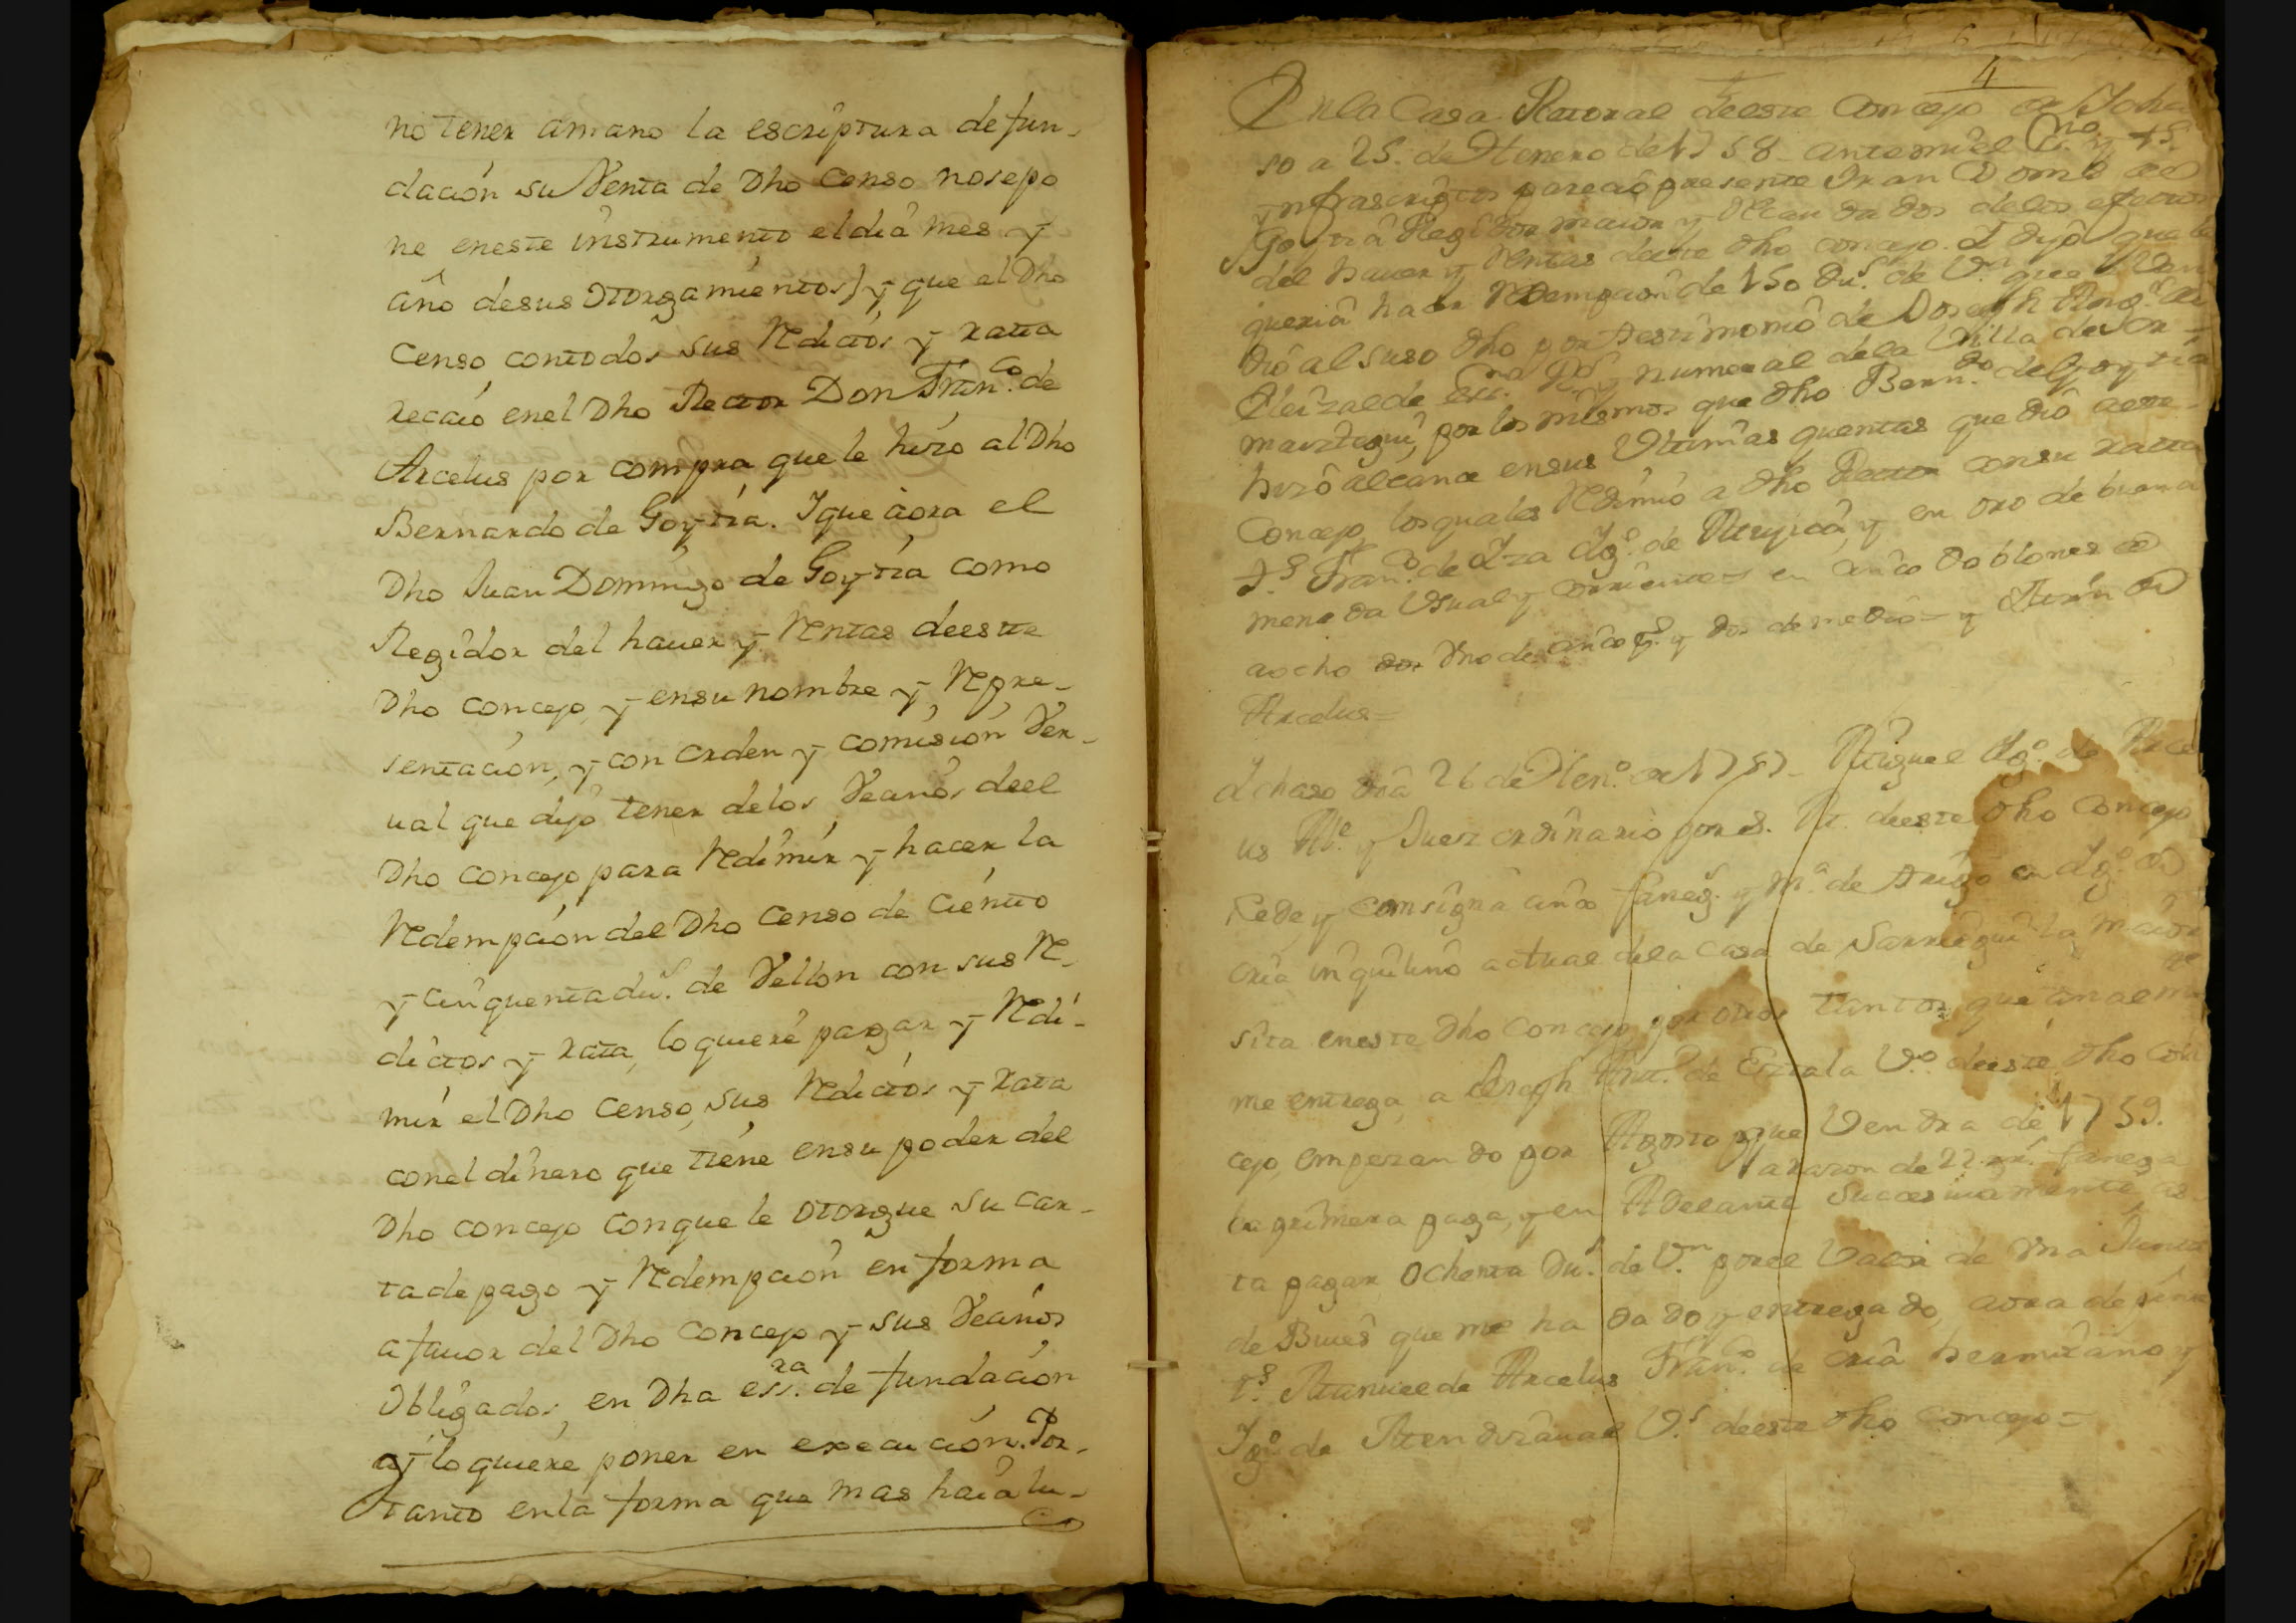 no tener amano la escriptura de fun-
dación su Venta de Dho Censo nosepo
ne eneste instrumento el día mes y
año desus Otorgamientos) y que el Dho
Censo contodos sus Reditos y ratta
recaió enel Dho Rector Don Fran.co de
Arcelus por compra que le hizo al Dho
Bernardo de Goytia. Ique aora el
Dho Juan Domingo de Goytia como
Regidor del hauer y Rentas deeste
Dho Concejo, y ensu nombre y Repre-
sentación, y con orden y comisión Ver-
ual que dijo tener delos Vecinos deel
Dho Concejo para Redimir y hacer la
Redempción del Dho Censo de Ciento
y cinquenta du.s de Vellon con sus Re-
dictos y rata, lo quiere pargar y Redi-
mir el Dho Censo, sus Redictos y Rata
conel dinero que tiene ensu poder del
Dho Concejo conque le otorgue su Car-
ta de pago y Redempción en forma
afauor del Dho Concejo y sus Vecinos
Obligados, en Dha ess.ra de fundación
y lo quiere poner en execución. Por-
tanto enla forma que mas haia lu-
4
Enla Casa Rectoral deeste Concejo de Ycha
so a 25. de Henero de 1758. antemi el
ynfrascriptos pareció presente Juan Dom.o de
Goytia Regidor maior y Recaudador delos efectos
del hauer y Rentas deeste dho concejo. I dijo que
queriâ hacer Redempción de 150 Du.s de V.n que
dió al suso dho por testimonio de Joseph
Eleizalde Ess.no numeral dela Villa de Or-
maiztegui, por los mismos que dho Bern.do de Goytia
hizo alcance ensus Ultimas quentas que dió aeste
Concejo, losquales Redimió a dho Rector consu ratta
t.s Fran.co de Yza Ig.o de y en oro de buena
moneda Usual y corriente en cinco Doblones de
aocho Uno de cinco p.s y dos de medio y
Arcelus=
Ichaso día 26 de Hen.o de Miguel Ig.o de Arce
us Al.e y Juez ordinario por s. M. deeste dho Concejo
Cede, y Consigna cinco faneg.s y m.a de trigo en Ig.o de
Oria inquilino actual dela Casa de Sarriegui la maior
sita eneste dho Concejo, por otros tantos que
me entrega, a Joseph Ant.o de Eztala V.o deeste dho Con
cejo, empezando por Agosto que Vendra de 1759.
arazon de 22. rr.s fanega
la primera paga, y en Adelante Succesiuamente as-
ta pagar Ochenta Du.s de V.n porel Valor de Una Junta
de Bues que me ha dado y entregado, aora de
t.s Manuel de Arcelus Fran.co de Oria hermitano y
Ig.o de V.s deeste dho Concejo=